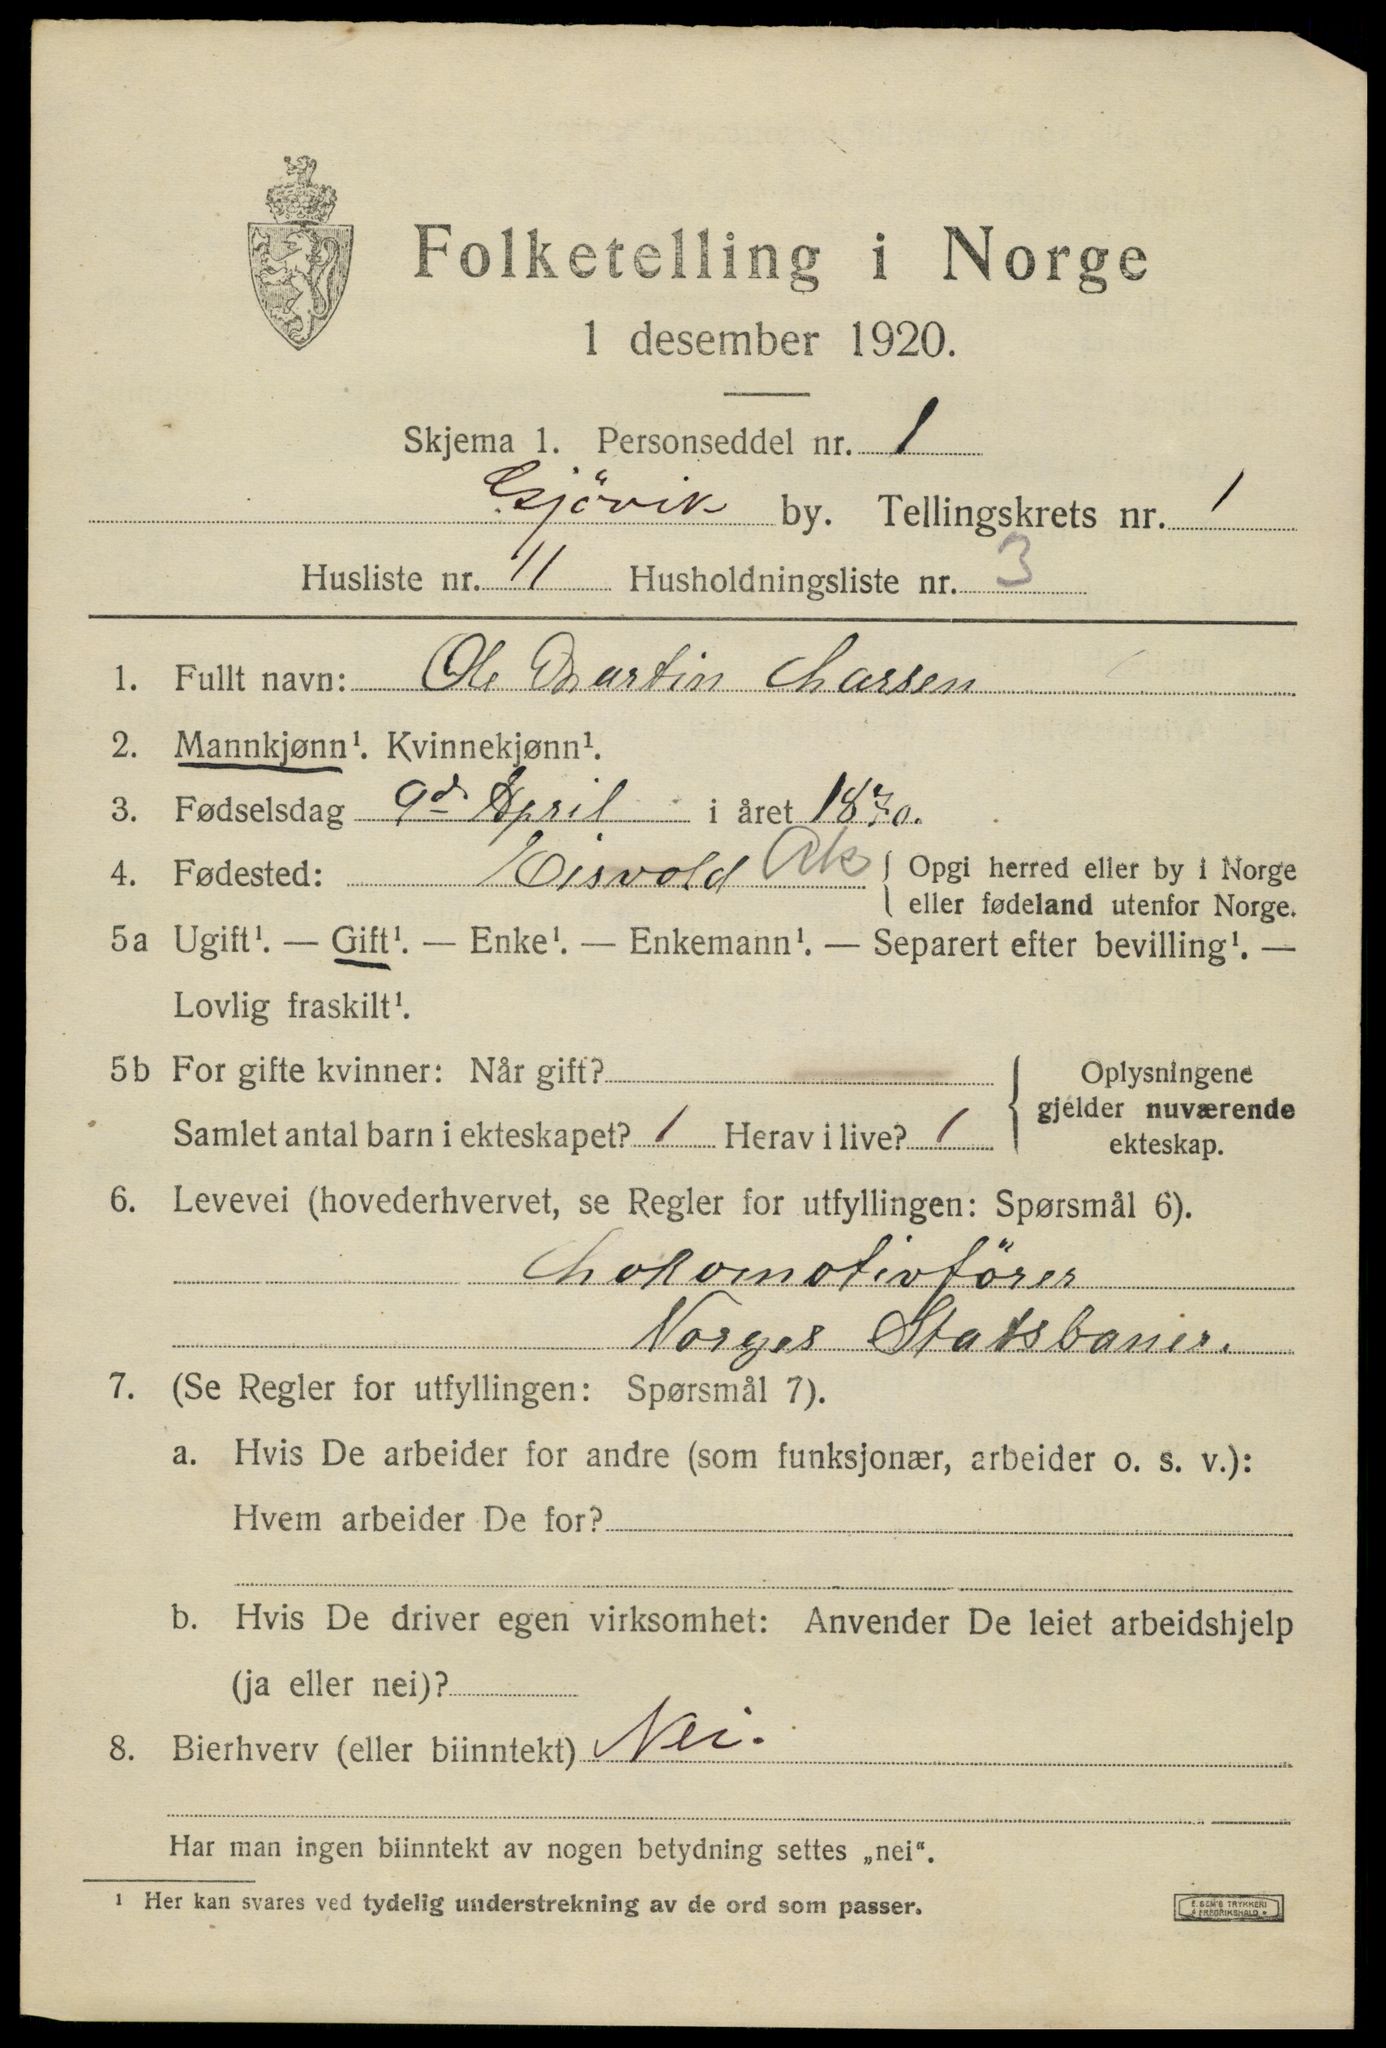 Folketelling i Norge
1 desember 1920.
Skjema 1. Personseddel nr. 1
Gjövik by. Tellingskrets nr. 1
Husliste nr. 11 Husholdningsliste nr. 3
1. Fullt navn: Ole Martin Larsen
2. Mannkjønn¹. Kvinnekjønn¹.
3. Fødselsdag 9de April i året 1870.
4. Fødested: Eisvold Ak { Opgi herred eller by i Norge
eller fødeland utenfor Norge.
5a Ugift¹. — Gift¹. — Enke¹. — Enkemann¹. — Separert efter bevilling¹. —
Lovlig fraskilt¹.
5b For gifte kvinner: Når gift? { Oplysningene
gjelder nuværende
Samlet antal barn i ekteskapet? 1 Herav i live? 1 ekteskap.
6. Levevei (hovederhvervet, se Regler for utfyllingen: Spørsmål 6).
Lokomotivförer
Norges Statsbaner.
7. (Se Regler for utfyllingen: Spørsmål 7).
a. Hvis De arbeider for andre (som funksjonær, arbeider o. s. v.):
Hvem arbeider De for?
b. Hvis De driver egen virksomhet: Anvender De leiet arbeidshjelp
(ja eller nei)?
8. Bierhverv (eller biinntekt) Nei.
Har man ingen biinntekt av nogen betydning settes „nei“.
¹ Her kan svares ved tydelig understrekning av de ord som passer.
E. SEM'S TRYKKERI
FREDRIKSHALD